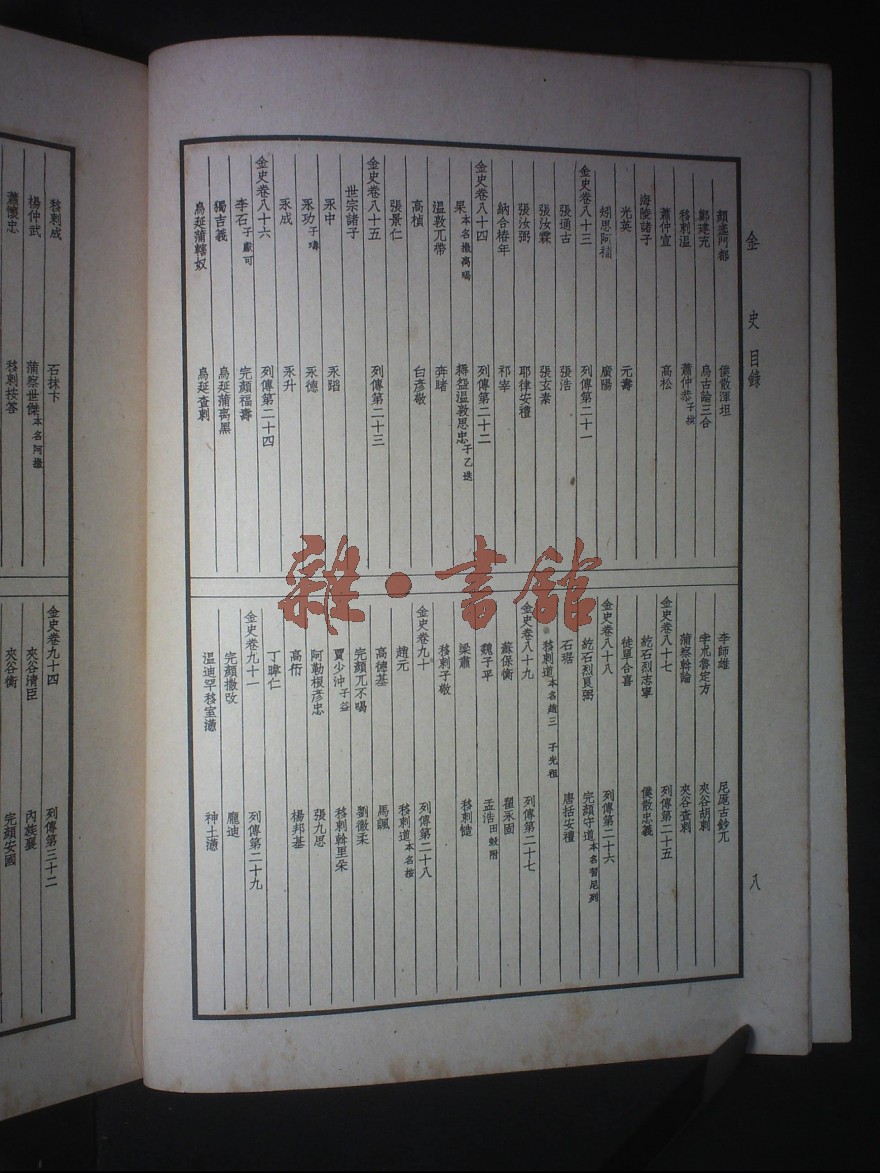 金史目錄
八
顏盞門都 僕散渾坦
鄭建充 烏古論三合
移剌溫 蕭仲恭子拱
蕭仲宣 高松
海陵諸子
光英 元壽
矧思阿補 廣陽
金史卷八十三 列傳第二十一
張通古 張浩
張汝霖 張玄素
張汝弼 耶律安禮
納合椿年 祁宰
金史卷八十四 列傳第二十二
杲本名撒离喝 耨盌溫敦思忠子乙迭
溫敦兀帶 奔睹
高楨 白彥敬
張景仁
金史卷八十五 列傳第二十三
世宗諸子
永中 永蹈
永功子璹 永德
永成 永升
金史卷八十六 列傳第二十四
李石子獻可 完顏福壽
獨吉義 烏延蒲离黑
烏延蒲轄奴 烏延查剌
李師雄 尼厖古鈔兀
孛朮魯定方 夾谷胡剌
蒲察斡論 夾谷查剌
金史卷八十七 列傳第二十五
紇石烈志寧 僕散忠義
徒單合喜
金史卷八十八 列傳第二十六
紇石烈良弼 完顏守道本名習尼列
石琚 唐括安禮
移剌道本名趙三 子光祖
金史卷八十九 列傳第二十七
蘇保衡 翟永固
魏子平 孟浩田瑴附
梁肅 移剌慥
移剌子敬
金史卷九十 列傳第二十八
趙元 移剌道本名按
高德基 馬諷
完顏兀不喝 劉徽柔
賈少沖子益 移剌斡里朵
阿勒根彥忠 張九思
高衎 楊邦基
丁暐仁
金史卷九十一 列傳第二十九
完顏撒改 龐迪
溫迪罕移室懣 神土懣
移剌成 石抹卞
楊仲武 蒲察世傑本名阿撒
蕭懷忠 移剌按答
金史卷九十四 列傳第三十二
夾谷清臣 內族襄
夾谷衡 完顏安國
雜·書館